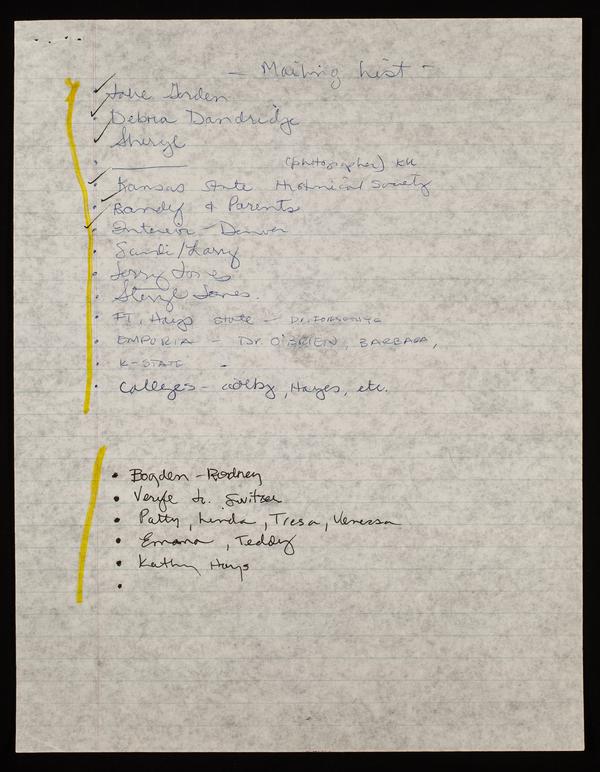 - Mailing List -
Debra Dandridge
Sheryl
(photographer) KU
Kansas State Historical Society
Bandy & Parents
Interior - Denver
Sandi/Larry
Jerry Jones
Sherryl Jones.
FT. Hays State - Dr.
EMPORIA - Dr. O'BRIEN, BARBARA,
K-STATE -
Colleges - Colby, Hayes, etc.
Bogden - Rodney
Veryle Switzer
Patty, Linda, Tresa, Venessa
Emama, Teddy
Kathy Hays